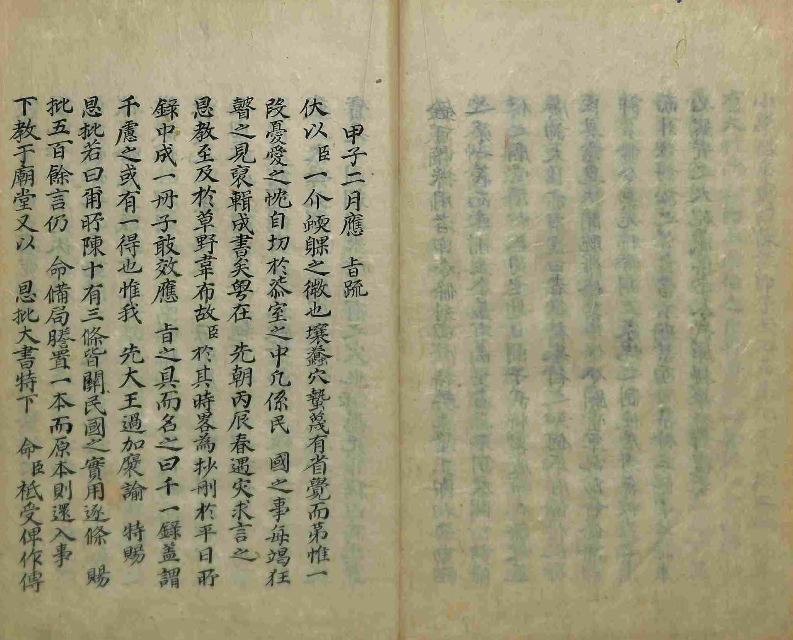 甲子二月應　旨疏
伏以臣一介蝡蜾之微也壤蠡穴蟄蔑有省覺而第惟一
段憂愛之忱自切於漆室之中凡係民　國之事每竭狂
瞽之見裒輯成書矣粤在　先朝丙辰春遇灾求言之
恩教至及於草野韋布故臣於其時畧為抄刪於平日所
錄中成一冊子敢效應　旨之具而名之曰千一錄盖謂
千慮之或有一得也惟我　先大王過加褒諭　特賜
恩批若曰爾所陳十有三條皆關民國之實用逐條　賜
批五百餘言仍　命備局謄置一本而原本則還入事
下教于廟堂又以　恩批大書特下　命臣祗受俾作傳